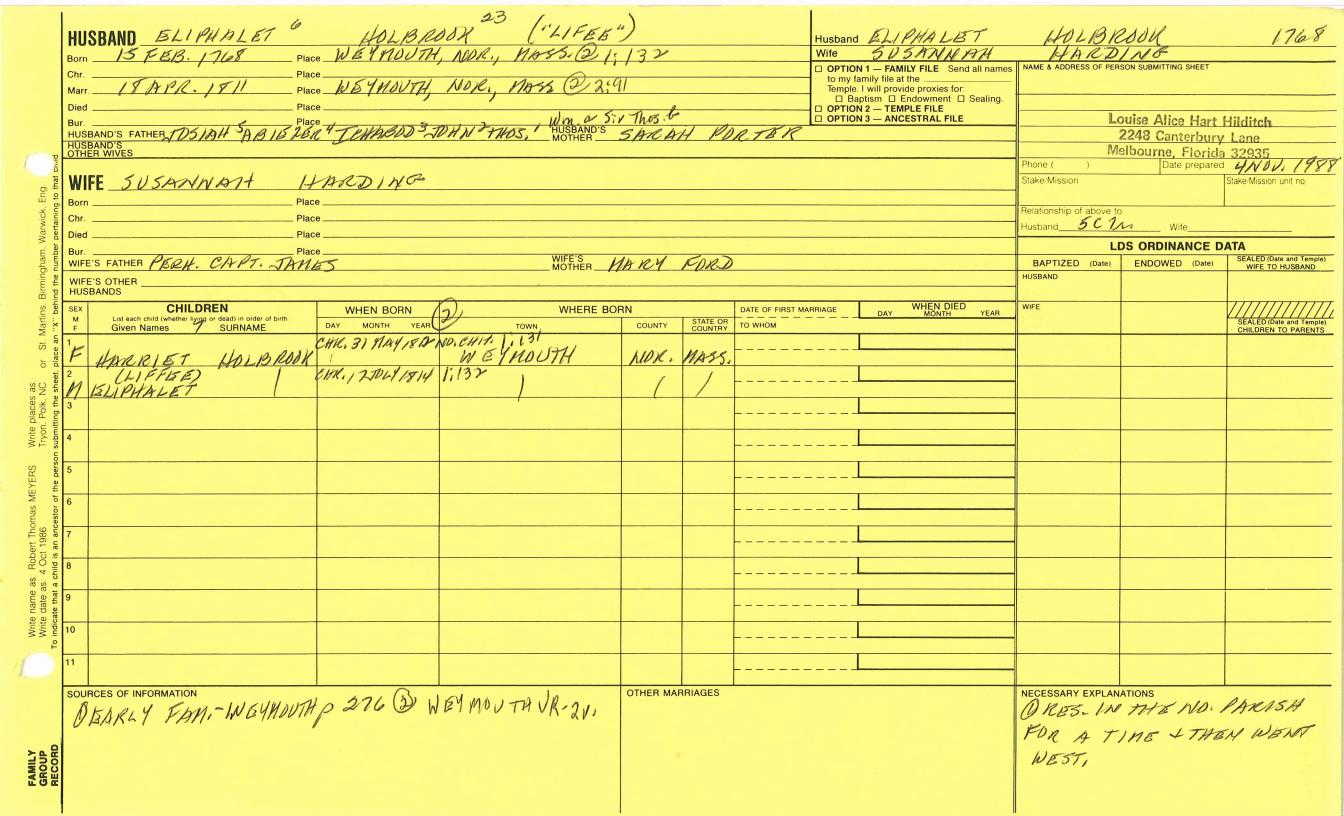 HUSBAND ELIPHALET 6 HOLBROOK 23 ("LIFEE")
Born 15 FEB. 1768 Place WEYMOUTH, NOR., MASS. ② 1:132
Chr. Place
Marr 18 APR. 1811 Place WEYMOUTH, NOR, MASS ② 2:91
Died Place
Bur. Place Wm. or Sir Thos. 6
HUSBAND'S FATHER JOSIAH 5 ABIEZER 4 ICHABOD 3 JOHN 2 THOS. 1 HUSBAND'S MOTHER SARAH PORTER
HUSBAND'S OTHER WIVES
WIFE SUSANNAH HARDING
Born Place
Chr. Place
Died Place
Bur. Place
WIFE'S FATHER PERH. CAPT. JAMES WIFE'S MOTHER MARY FORD
WIFE'S OTHER HUSBANDS
Husband ELIPHALET HOLBROOK 1768
Wife SUSANNAH HARDING
☐ OPTION 1 — FAMILY FILE Send all names
to my family file at the
Temple. I will provide proxies for:
☐ Baptism ☐ Endowment ☐ Sealing.
☐ OPTION 2 — TEMPLE FILE
☐ OPTION 3 — ANCESTRAL FILE
NAME & ADDRESS OF PERSON SUBMITTING SHEET
Louise Alice Hart Hilditch
2248 Canterbury Lane
Melbourne, Florida 32935
Phone ( ) Date prepared 4 NOV. 1988
Stake/Mission Stake/Mission unit no.
Relationship of above to
Husband 5C Wife
LDS ORDINANCE DATA
BAPTIZED (Date) ENDOWED (Date) SEALED (Date and Temple) WIFE TO HUSBAND
HUSBAND
WIFE
SEALED (Date and Temple) CHILDREN TO PARENTS
SEX M F
CHILDREN
List each child (whether living or dead) in order of birth
Given Names 7 SURNAME
WHEN BORN ② WHERE BORN
DAY MONTH YEAR TOWN COUNTY STATE OR COUNTRY
DATE OF FIRST MARRIAGE
TO WHOM
WHEN DIED
DAY MONTH YEAR
1 CHR. 31 MAY NO. CH. 1:131
F HARRIET HOLBROOK WEYMOUTH NOR. MASS.
2 (LIFFEE) CHR. 12 JULY 1814 1:132
M ELIPHALET
3
4
5
6
7
8
9
10
11
SOURCES OF INFORMATION
① EARLY FAM.-WEYMOUTH p 276 ② WEYMOUTH VR-2v.
OTHER MARRIAGES
NECESSARY EXPLANATIONS
① RES. IN THE NO. PARISH
FOR A TIME + THEN WENT
WEST.
Write name as: Robert Thomas MEYERS Write places as:
Write date as: 4 Oct 1986 Tryon, Polk, NC or St. Martins, Birmingham, Warwick, Eng.
To indicate that a child is an ancestor of the person submitting the sheet, place an "X" behind the number pertaining to that child
FAMILY
GROUP
RECORD